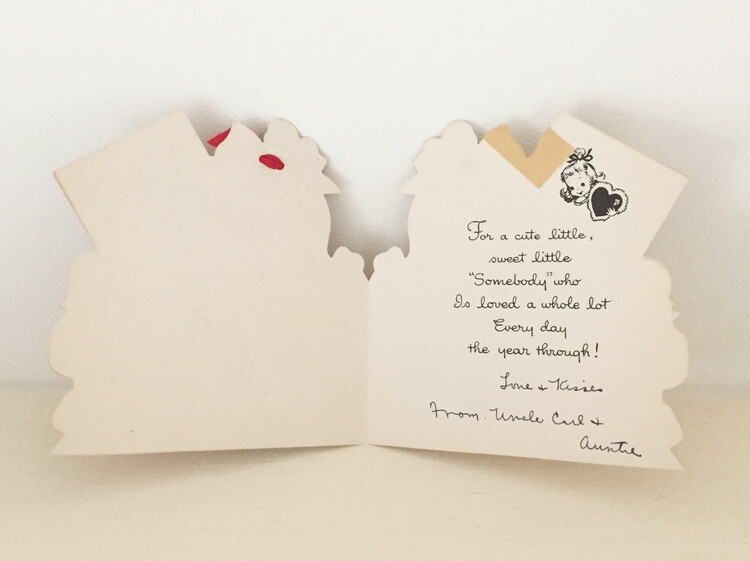 For a cute little,
sweet little
"Somebody" who
Is loved a whole lot
Every day
the year through!
Love + Kisses
From. Uncle Carl +
Auntie